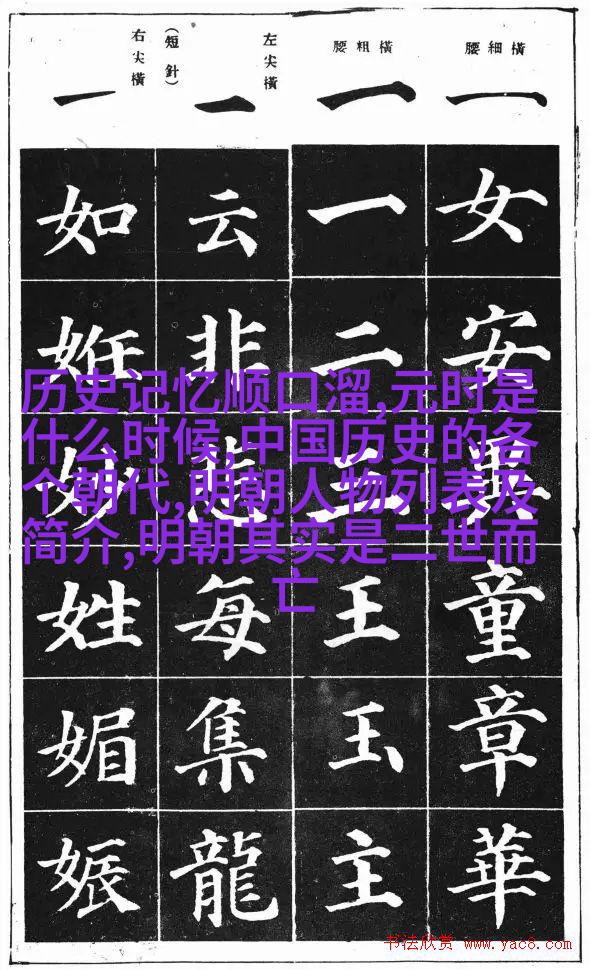 橫細腰
一
女安童章華
橫粗腰
一
一二三王玉主
左尖橫
(短針)
一
云非每集龍
右尖橫
一
如姙妙姓媚娠
历史记忆顺口溜,元时是
什么时候,中国历史的各
个朝代,明朝人物列表及
简介,明朝其实是二世而
亡
书法欣赏 www.yac8.com